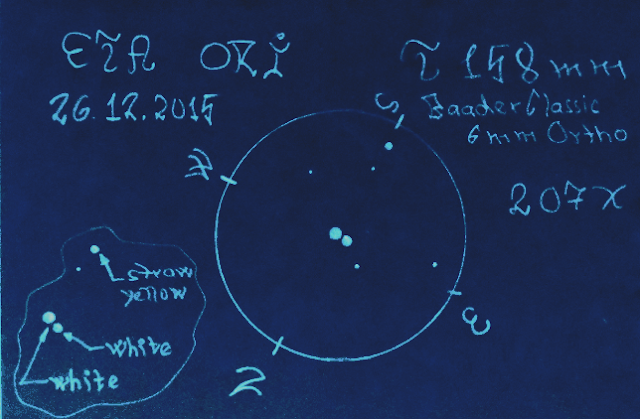 ETA ORI
26.12.2015
T 158mm
Baader Classic
6mm Ortho
207x
S
N
straw
yellow
white
white